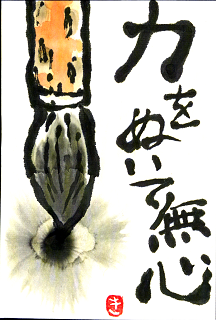 力を
ぬいて無心
き